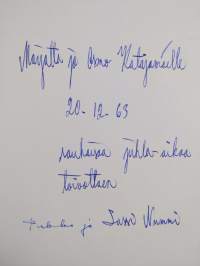 Marjatta ja Osmo Katajamäelle
20-12-63
rauhaisaa juhla-aikaa
toivottaen
ja Lassi Nummi